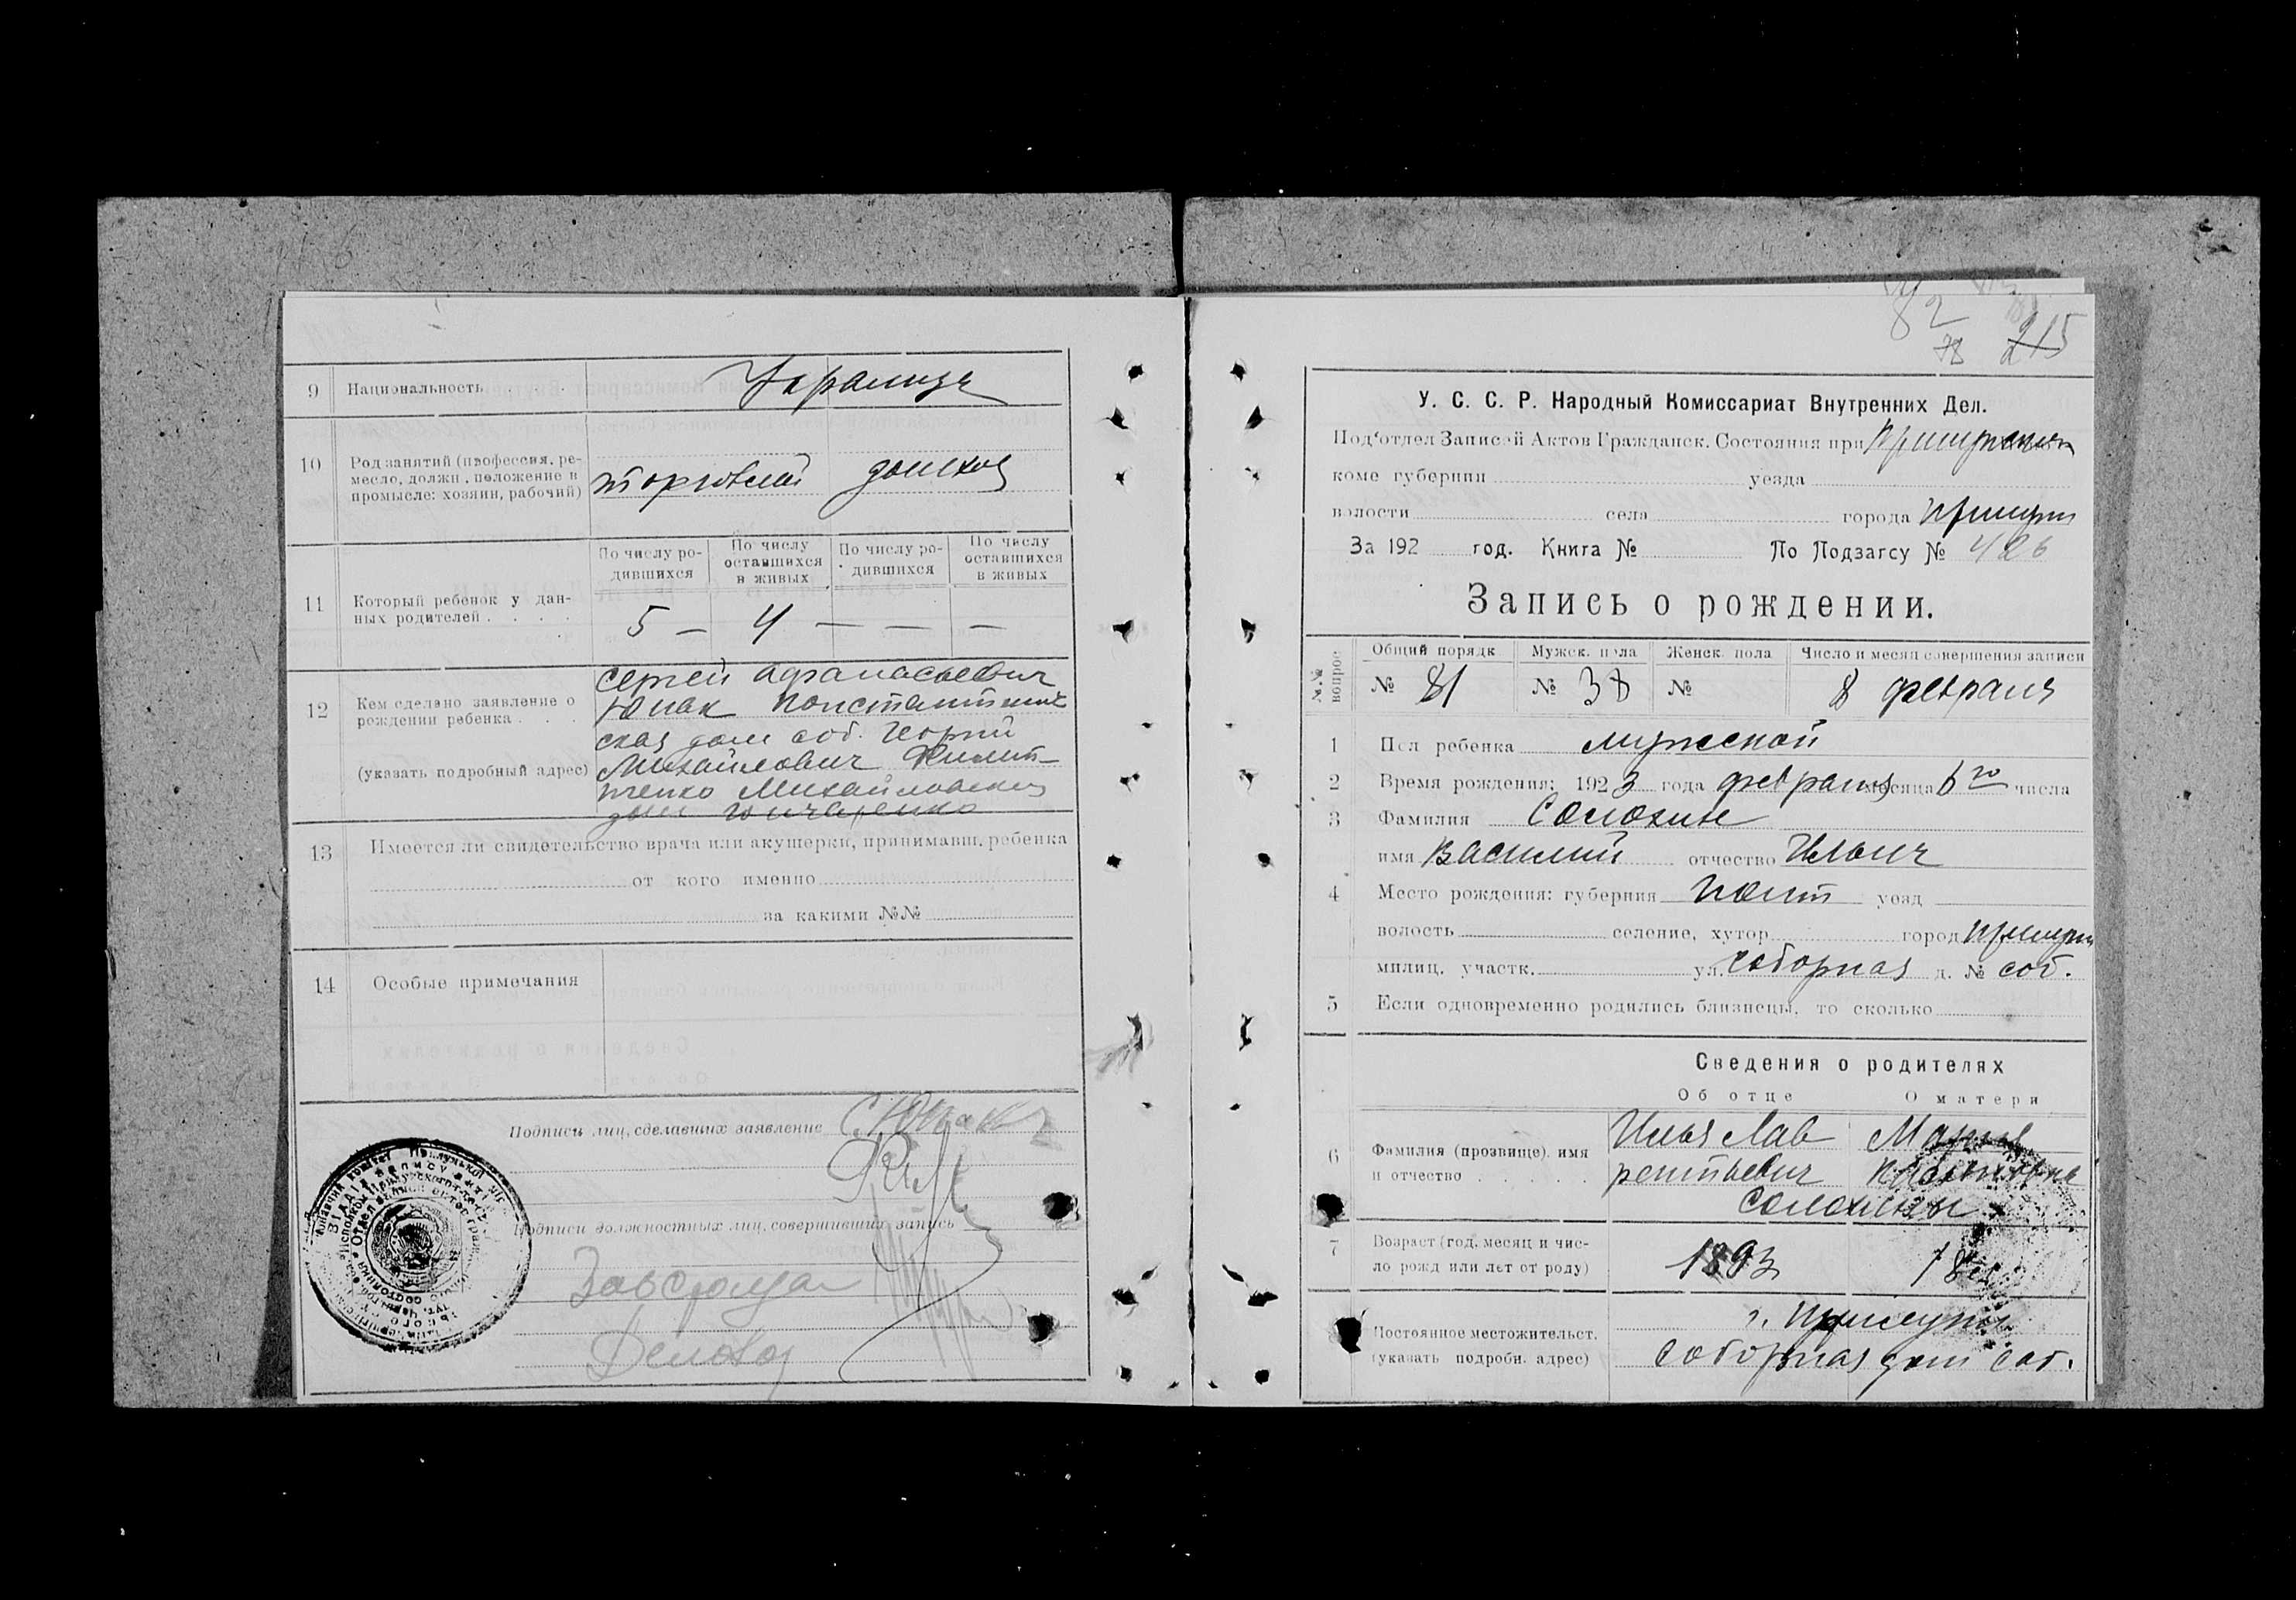 9 Национальность Украинцы
10 Род занятий (профессия, ре-
месло, должн., положение в
промысле: хозяин, рабочий)
торговый домохоз
По числу ро-
дившихся
По числу
оставшихся
в живых
По числу ро-
дившихся
По числу
оставшихся
в живых
11 Который ребенок у дан-
ных родителей . . . .
5 — 4 — — —
12 Кем сделано заявление о
рождении ребенка . . .
(указать подробный адрес)
Сергей Афанасьевич
Юнак Константинов
ская дом соб. Георгий
Михайлович Филип-
ченко Михайловская
дом Гончаренко
13 Имеется ли свидетельство врача или акушерки, принимавш. ребенка
от кого именно
за какими №№
14 Особые примечания
Подписи лиц, сделавших заявление С. Юнак
Подписи должностных лиц, совершивших запись
Завстолом
82
78 215
У. С. С. Р. Народный Комиссариат Внутренних Дел.
Под‘отдел Записей Актов Гражданск. Состояния при
коме губернии уезда
волости села города Прилуки
За 192 год. Книга № По Подзагсу № 426
Запись о рождении.
№.№ вопрос
Общий порядк Мужск. пола Женск. пола Число и месяц совершения записи
№ 81 № 38 № 8 февраля
1 Пол ребенка мужской
2 Время рождения: 1923 года февраля месяца 6го числа
3 Фамилия Солохин
имя Василий отчество Ильич
4 Место рождения: губерния Полт уезд
волость селение, хутор город Прилуки
милиц. участк. ул. Соборная д. № соб.
5 Если одновременно родились близнецы, то сколько
Сведения о родителях
Об отце О матери
6 Фамилия (прозвище), имя
и отчество . . . . .
Илья Лав
рентьевич
Мария
Солохины
7 Возраст (год, месяц и чис-
ло рожд или лет от роду)
1893
Постоянное местожительст.
(указать подробн. адрес)
г. Прилуки
Соборная дом соб.